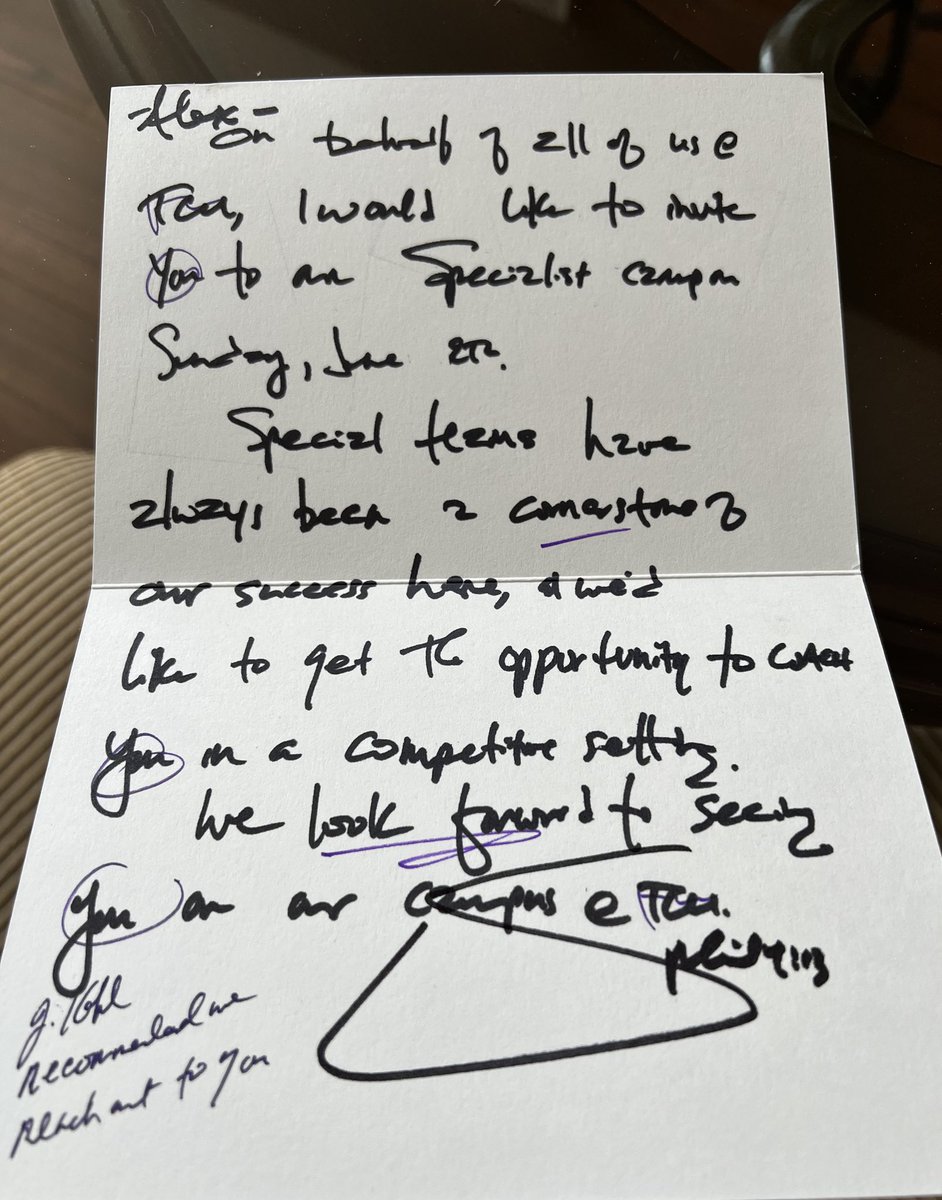 -Alex-
on behalf of all of us @
TCU, I would like to invite
you to our Specialist camp on
Sunday, June
Special teams have
always been a cornerstone of
our success here, & we'd
like to get the opportunity to coach
you in a competitive setting.
We look forward to seeing
you on our campus @ TCU.
J. Kohl
recommended we
reach out to you